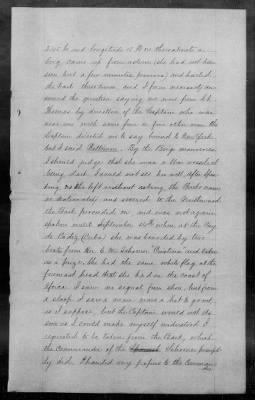 2105 N and longitude 15 W on thereabouts a
brig came up from astern (she had not been
seen but a few minutes previous) and hailed.
She had three men, and I from necessity an-
swered the question saying we were from St.
Thomas by direction of the Captain who was
near me with some four or five other men. The
Captain directed me to say bound to New York,
but I said Baltimore. By the Brigs manoeuvres
I should judge that she was a Man vessel, it
being dark I could not see her well. After spea-
king, she left without asking, the Bark's name
or nationality and steered to the Southward.
The Bark proceeded on and was not again
spoken until September 14th when at the Bay
de Cadiz (Cuba) she was boarded by two
boats from the and taken
as a prize. She had the same white flag at the
foremast head that she had on the coast of
Africa. I saw no signal from shore, but from
a sloop I saw a man wave a hat to go out,
as I suppose, but the Captain would not do
so as I could make myself understood I
requested to be taken from the Bark, which
the Commander of the Schooner prompt-
ly did. I handed my papers to the Comman-